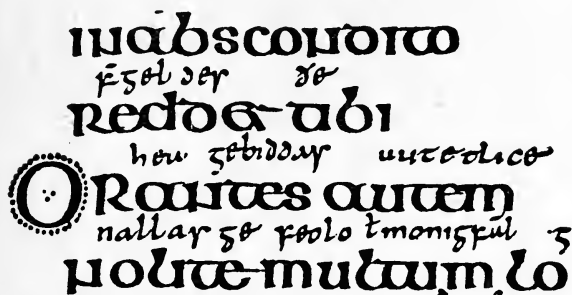 inabscondito
f̄geldes ðe
redd& tibi
gebiddas uutetlice
ORantes autem
nallas ge feolo ł monigful g
nolite multum lo